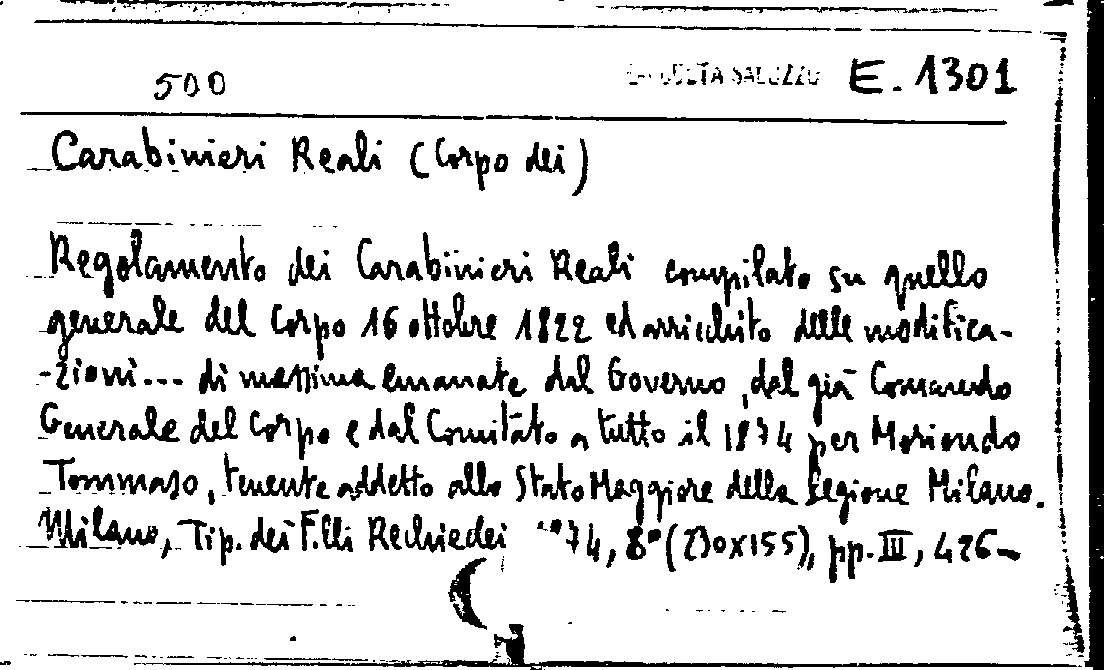 500 RACCOLTA SALUZZO E. 1301
Carabinieri Reali (Corpo dei)
Regolamento dei Carabinieri Reali compilato su quello
generale del Corpo 16 ottobre 1822 ed arricchito delle modifica-
-zioni... di massima emanate dal Governo, dal già Comando
Generale del Corpo e dal Comitato a tutto il 1874 per Moriondo
Tommaso, tenente addetto allo Stato Maggiore della Legione Milano.
Milano, Tip. dei F.lli Rechiedei 74, 8° (230x155), pp. III, 426-